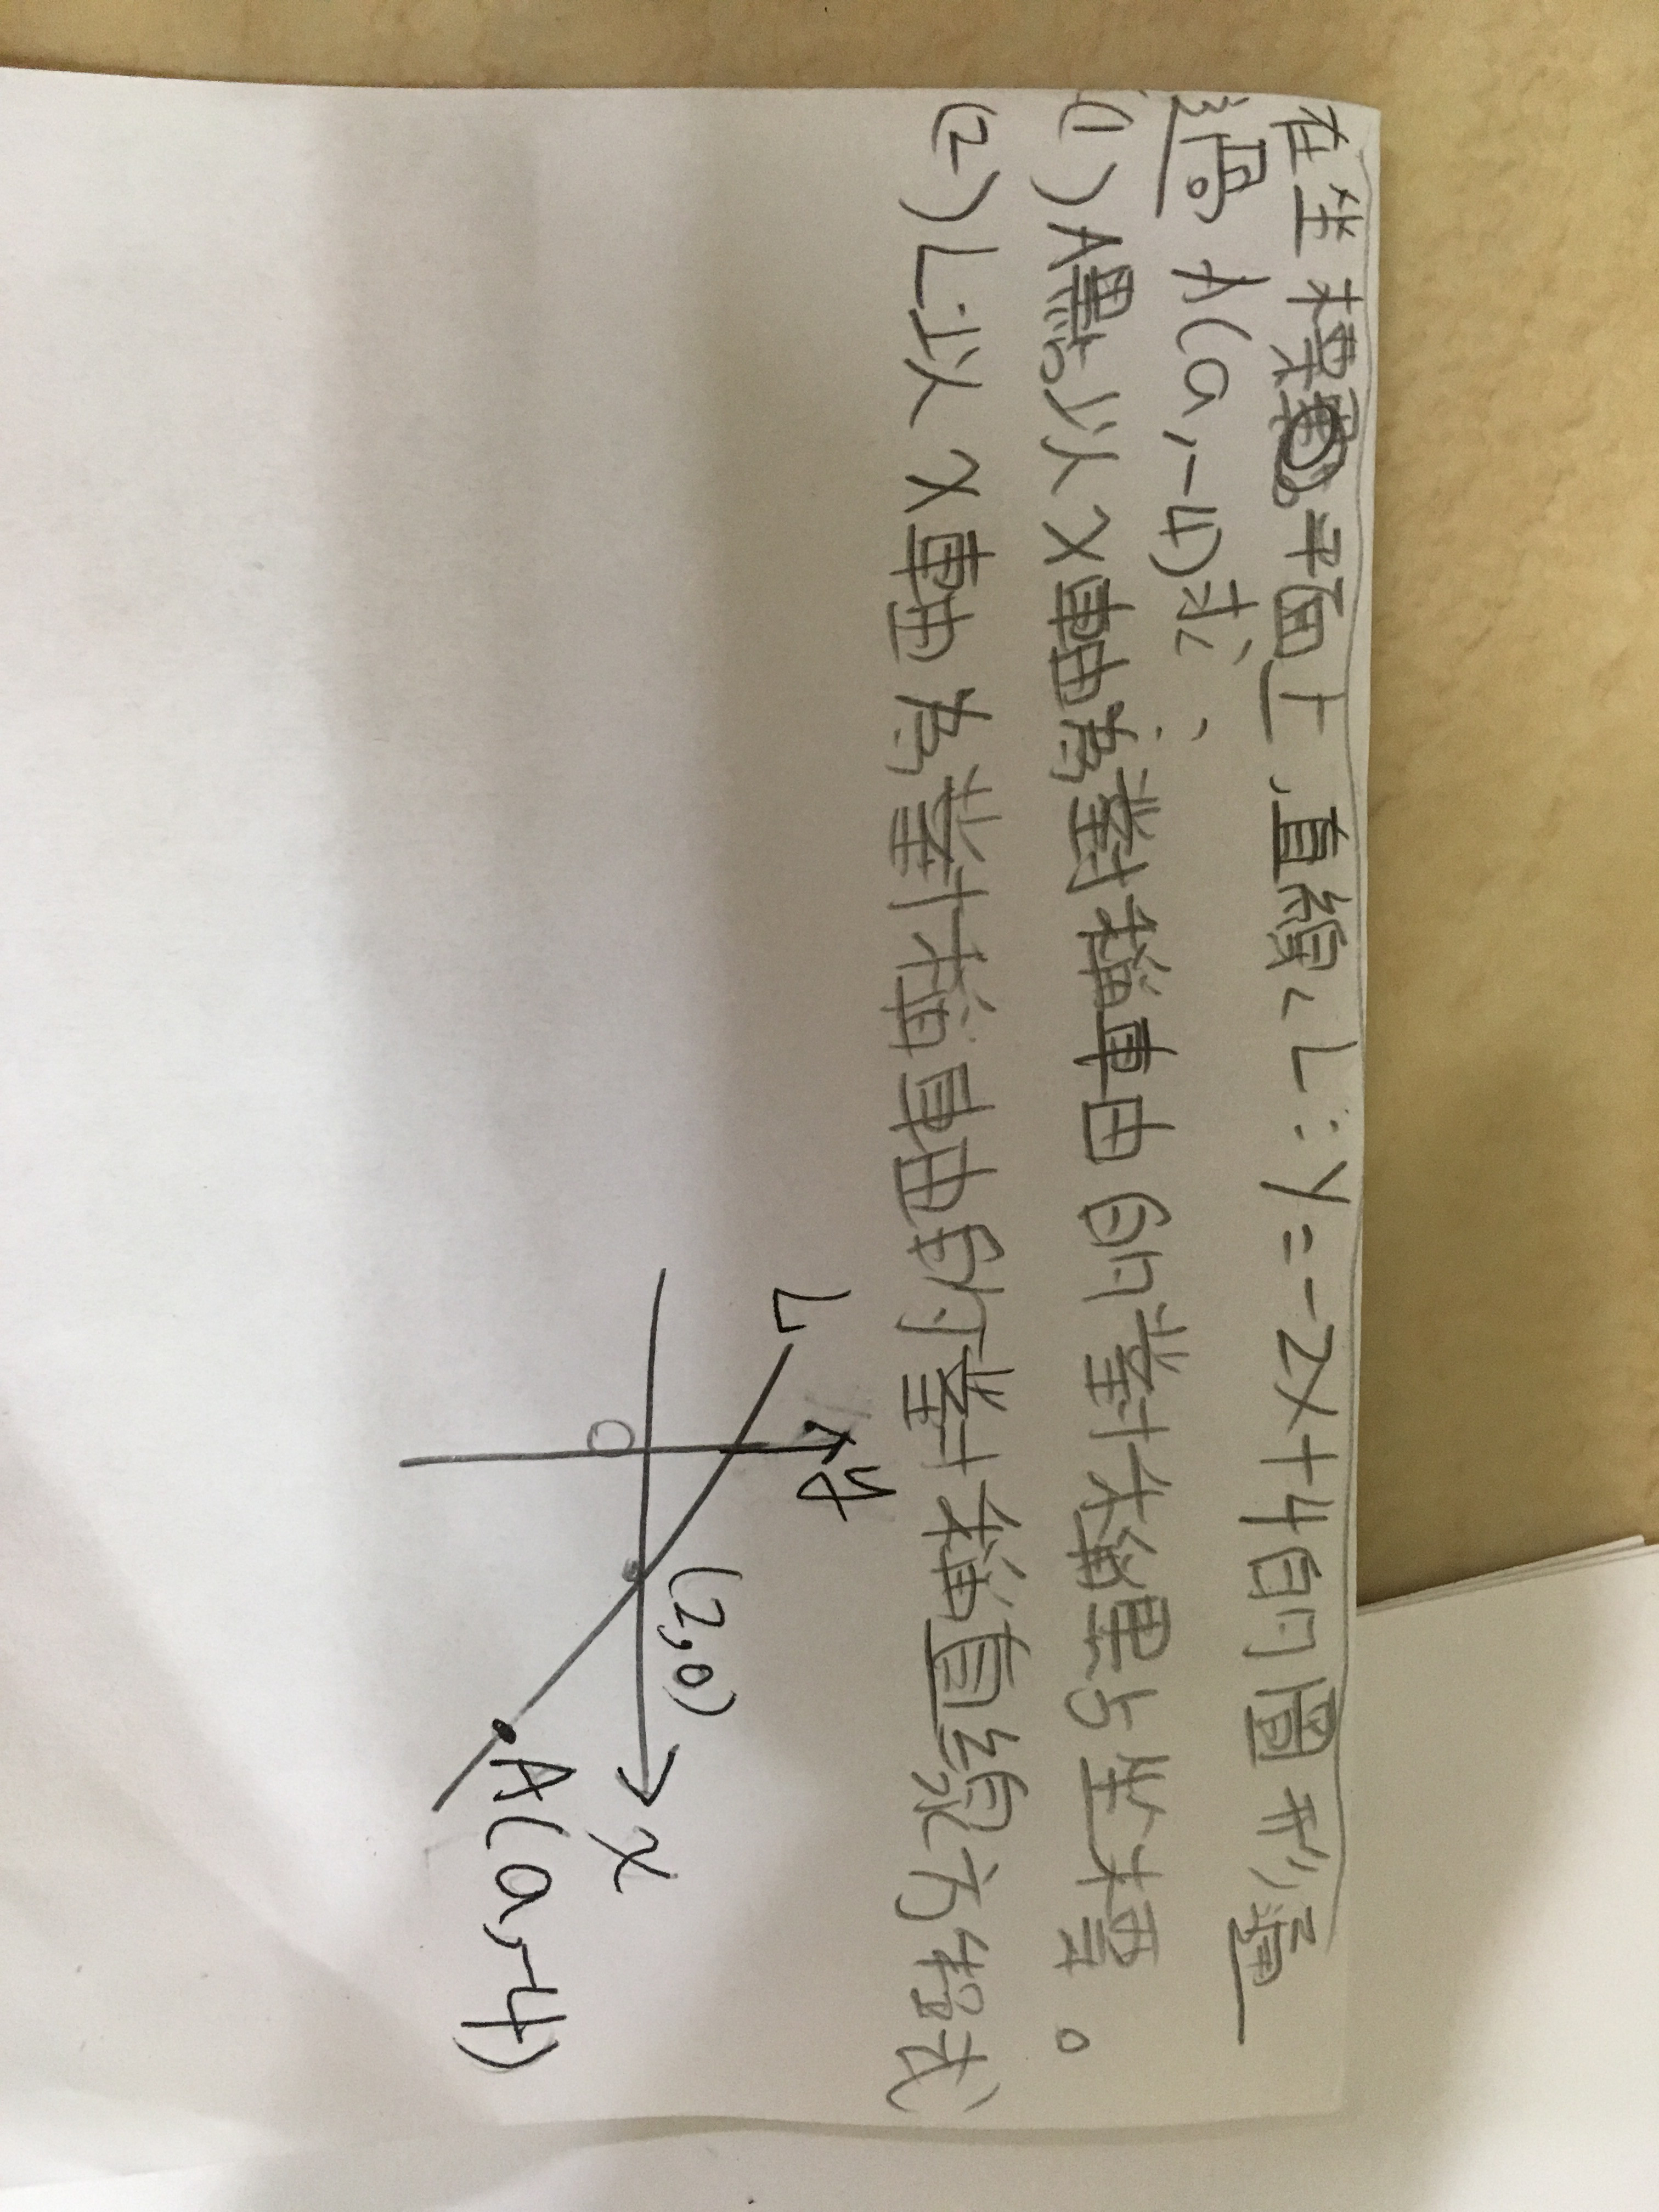 在坐標平面上,直線L:y=-2x+4的圖形通
過A(a,-4)求:
(1)A點以x軸為對稱軸的對稱點坐標。
(2)L以x軸為對稱軸的對稱直線方程式
L
y
(2,0)
O
x
A(a,-4)